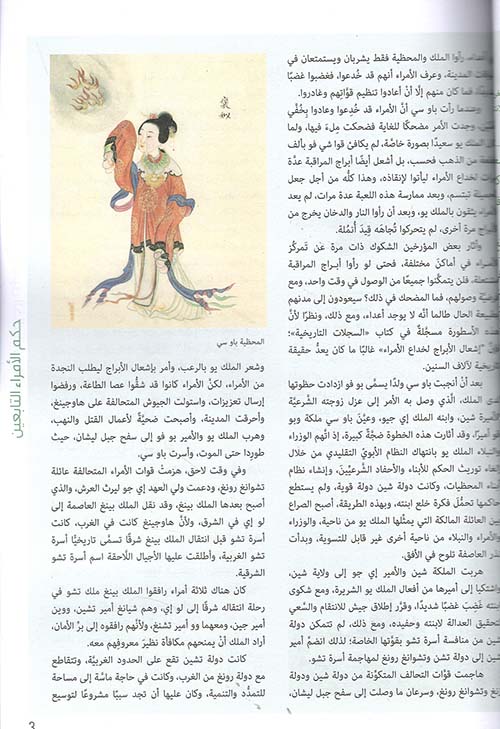 رأوا الملك والمحظية فقط يشربان ويستمتعان في
المدينة، وعرف الأمراء أنهم قد خُدعوا، فغضبوا غضبًا
فما كان منهم إلّا أنْ أعادوا تنظيم قوّاتِهم وغادروا.
وعندما رأت باو سي أنَّ الأمراء قد خُدِعوا وعادوا بِخُفَّي
وجدت الأمر مضحكًا للغاية فضحكت مِلءَ فيها، ولما
الملك يو سعيدًا بصورة خاصَّة، لم يكافئ قوا شي فو بألف
من الذهب فحسب، بل أشعل أيضًا أبراج المراقبة عدَّة
لخداع الأمراء ليأتوا لإنقاذه، وهذا كلُّه من أجل جعل
تبتسم، وبعد ممارسة هذه اللعبة عدة مرات، لم يعد
يثقون بالملك يو، وبعد أن رأوا النار والدخان يخرج من
مرة أخرى، لم يتحركوا تُجاهَه قِيدَ أُنمُلة.
وأثار بعض المؤرخين الشكوك ذات مرة عَن تَمركُز
في أماكنَ مختلفة، فحتى لو رأوا أبراج المراقبة
فلن يتمكَّنوا جميعًا من الوصول في وقت واحد، ومع
وصولهم، فما المضحك في ذلك؟ سيعودون إلى مدنهم
الحال طالما أنَّه لا يوجد أعداء، ومع ذلك، ونظرًا لأنَّ
الأسطورة مسجَّلة في كتاب «السجلات التاريخية»؛
«إشعال الأبراج لخداع الأمراء» غالبًا ما كان يعدُّ حقيقة
لآلاف السنين.
بعد أنْ أنجبت باو سي ولدًا يسمَّى بو فو ازدادت حظوتها
الملك، الَّذي وصل به الأمر إلى عزل زوجته الشَّرعيَّة
شين، وابنه الملك إي جيو، وعيَّنَ باو سي ملكة وبو
أميرًا، وقد أثارت هذه الخطوة ضجَّة كبيرة، إذ اتَّهم الوزراء
والنبلاء الملك يو بانتهاك النظام الأبويّ التقليدي من خلال
توريث الحكم للأبناء والأحفاد الشَّرعيّينَ، وإنشاء نظام
المحظيات، وكانت دولة شين دولة قوية، ولم يستطع
حاكمها تحمُّلَ فكرة خلع ابنته، وبهذه الطريقة، أصبح الصراع
العائلة المالكة التي يمثِّلها الملك يو من ناحية، والوزراء
والأمراء والنبلاء من ناحية أخرى غير قابل للتسوية، وبدأت
العاصفة تلوح في الأفق.
هربت الملكة شين والأمير إي جو إلى ولاية شين،
واشتكيا إلى أميرها من أفعال الملك يو الشريرة، ومع شكوى
غَضِبَ غضبًا شديدًا، وقرَّر إطلاق جيش للانتقام والسَّعي
لتحقيق العدالة لابنته وحفيده، ومع ذلك، لم تتمكن دولة
شين من منافسة أسرة تشو بقوَّتها الخاصة؛ لذلك انضمَّ أمير
شين إلى دولة تشن وتشوانغ رونغ لمهاجمة أسرة تشو.
هاجمت قوَّات التحالف المتكوِّنة من دولة شين ودولة
وتشوانغ رونغ، وسرعان ما وصلت إلى سفح جبل ليشان،
褒姒
المحظية باو سي
وشعر الملك يو بالرعب، وأمر بإشعال الأبراج ليطلب النجدة
من الأمراء، لكنَّ الأمراء كانوا قد شقُّوا عصا الطاعة، ورفضوا
إرسال تعزيزات، واستولت الجيوش المتحالفة على هاوجينغ،
وأحرقت المدينة، وأصبحت ضحيَّةً لأعمال القتل والنهب،
وهرب الملك يو والأمير بو فو إلى سفح جبل ليشان، حيث
طوردا حتى الموت، وأسرت باو سي.
وفي وقت لاحق، هزمتْ قوات الأمراء المتحالفة عائلة
تشوانغ رونغ، ودعمت ولي العهد إي جو ليرث العرش، والذي
أصبح بعدها الملك بينغ، وقد نقل الملك بينغ العاصمة إلى
لو إي في الشرق، ولأنَّ هاوجينغ كانت في الغرب، كانت
أسرة تشو قبل انتقال الملك بينغ شرقًا تسمَّى تاريخيًّا أسرة
تشو الغربية، وأطلقت عليها الأجيال اللَّاحقة اسم أسرة تشو
الشرقية.
كان هناك ثلاثة أمراء رافقوا الملك بينغ ملك تشو في
رحلة انتقاله شرقًا إلى لو إي، وهم شيانغ أمير تشين، ووين
أمير جين، ومعهما وو أمير تشنغ، ولأنَّهم رافقوه إلى برِّ الأمان،
أراد الملك أنْ يمنحهم مكافأة نظيرَ معروفِهم معه.
كانت دولة تشين تقع على الحدود الغربيَّة، وتتقاطع
مع دولة رونغ من الغرب، وكانت في حاجة ماسَّة إلى مساحة
للتمدُّد والتنمية، وكان عليها أن تجد سببًا مشروعًا لتوسيع
حكم الأمراء التابعين
3